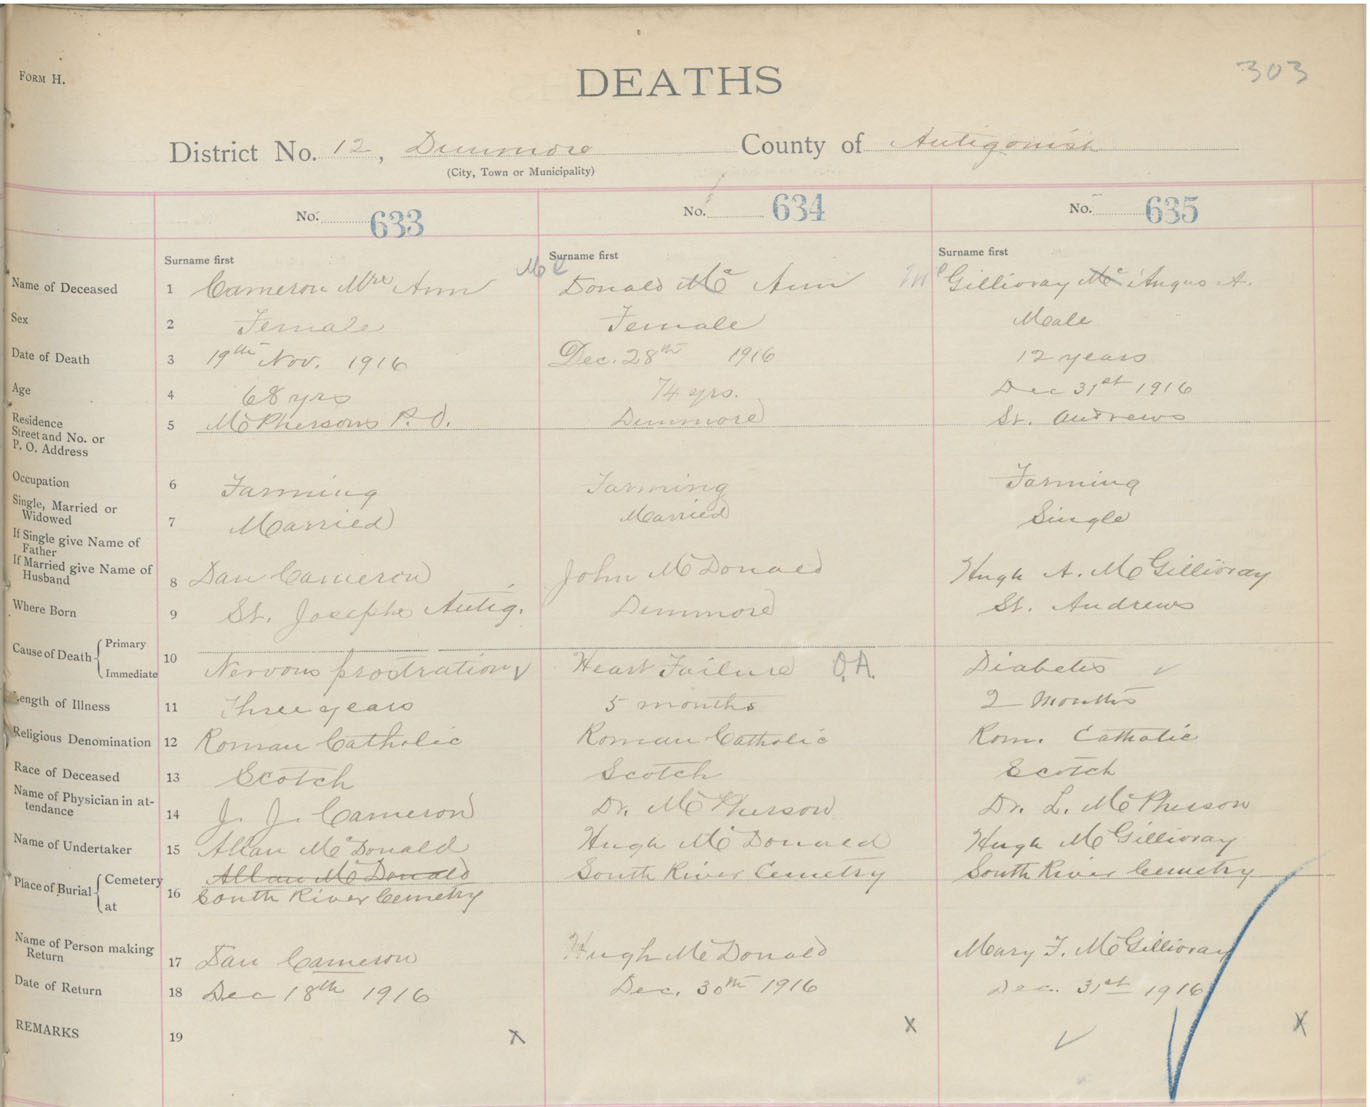 FORM H.
DEATHS
303
District No. 12, Dunmore County of Antigonish
(City, Town or Municipality)
No. 633 No. 634 No. 635
Surname first Surname first Surname first
Name of Deceased 1 Cameron Mrs Ann Mc Donald Mc Ann Mc Gillivray Mc Angus A.
Sex 2 Female Female Male
Date of Death 3 19th Nov. 1916 Dec. 28th 1916 12 years
Age 4 68 yrs 74 yrs. Dec 31st 1916
Residence Street and No. or P. O. Address 5 McPhersons P. O. Dunmore St. Andrews
Occupation 6 Farming Farming Farming
Single, Married or Widowed 7 Married Married Single
If Single give Name of Father
If Married give Name of Husband 8 Dan Cameron John McDonald Hugh A. McGillivray
Where Born 9 St. Josephs Antig. Dunmore St. Andrews
Cause of Death Primary Immediate 10 Nervous prostration Heart Failure O.A. Diabetes
Length of Illness 11 Three years 5 months 2 months
Religious Denomination 12 Roman Catholic Roman Catholic Rom. Catholic
Race of Deceased 13 Scotch Scotch Scotch
Name of Physician in attendance 14 J. J. Cameron Dr. McPherson Dr. L. McPherson
Name of Undertaker 15 Allan McDonald Hugh McDonald Hugh McGillivray
Place of Burial Cemetery at 16 Allan McDonald South River Cemetry South River Cemetry South River Cemetry
Name of Person making Return 17 Dan Cameron Hugh McDonald Mary F. McGillivray
Date of Return 18 Dec 18th 1916 Dec. 30th 1916 Dec. 31st 1916
REMARKS 19 x x x